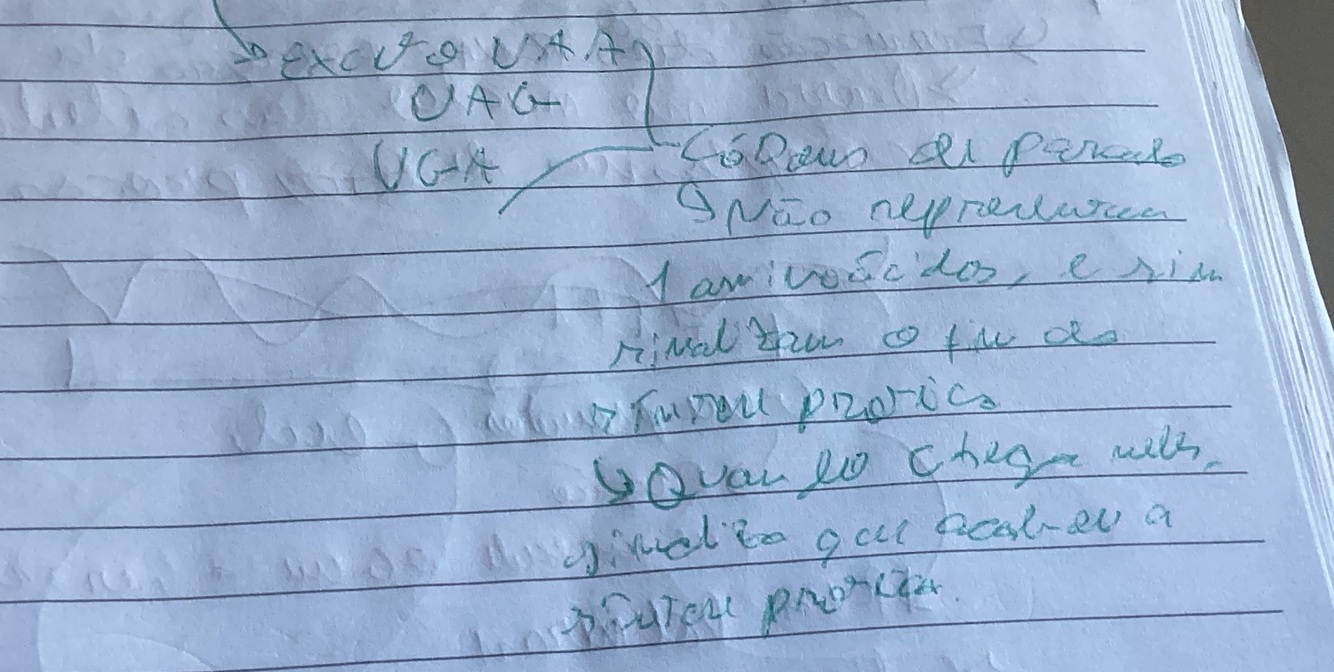 ↳ exceto UAA
UAG
UGA
Códons de parada
↳ Não representam
1 aminoácidos, e sim
sinalizam o fim da
síntese proteica
↳ Quando chega neles,
sinaliza que acabou a
síntese proteica.